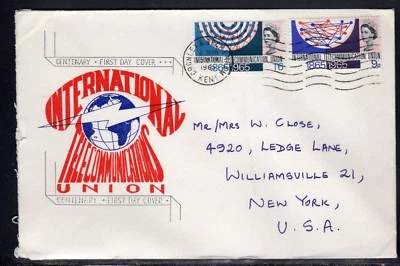 CENTENARY · FIRST DAY COVER
INTERNATIONAL
TELECOMMUNICATIONS
UNION
CENTENARY · FIRST DAY COVER
INTERNATIONAL TELECOMMUNICATION UNION
1865 1965 1/6
INTERNATIONAL TELECOMMUNICATION UNION
1865 1965 9d
KENT
MR/MRS W. CLOSE,
4920, LEDGE LANE,
WILLIAMSVILLE 21,
NEW YORK,
U.S.A.